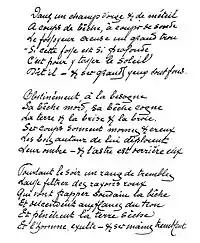 Dans un champ d'orge & de méteil
A coups de bêche, à coups de sonde
Le fossoyeur creuse un grand trou
Si cette fosse est si profonde
C'est pour y tasser le soleil
Dit-il — & ses grands yeux sont fous.
Obstinément, à la besogne
Sa bêche mord, sa bêche cogne
La terre & la brise & la
Ses coups sonnent mornes & creux
Les blés autour de lui déploient
Leur ombre — & l'astre est derrière eux
Pourtant le soir un rang de trembles
Laisse filtrer des rayons roux
Qui vont frapper soudain la bêche
Et descendent aux flancs du trou
Et pénètrent la terre sèche
Et l'homme exulte — & ses mains tremblent